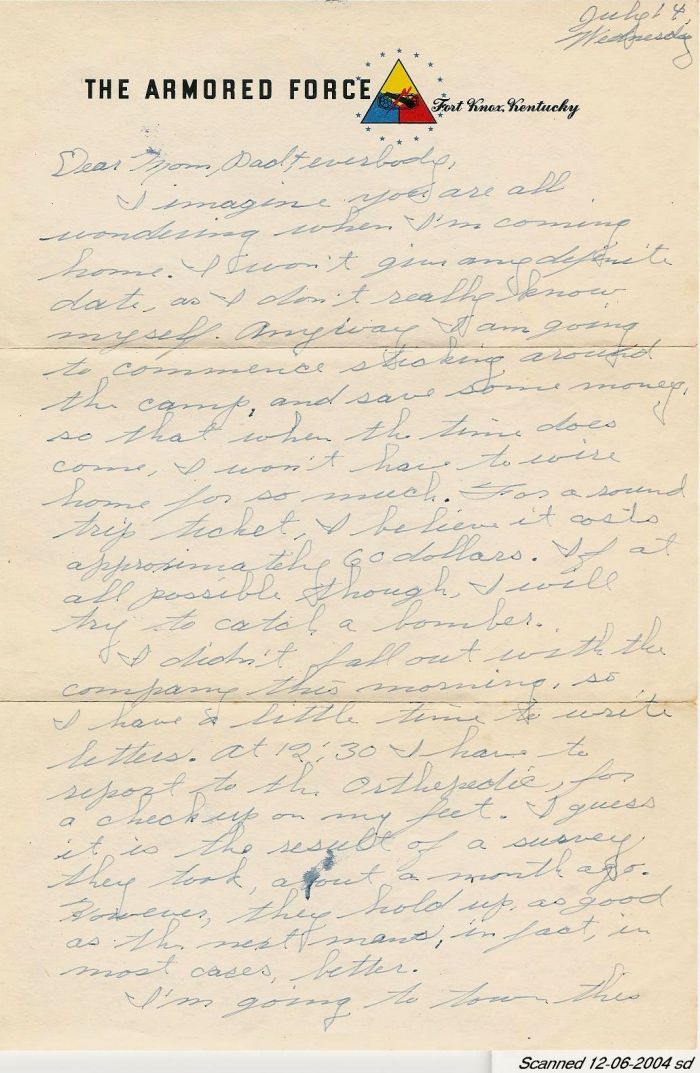 July 14,
Wednesday
THE ARMORED FORCE Fort Knox, Kentucky
Dear Mom, Dad & everbody,
I imagine you are all
wondering when I'm coming
home. I won't give any definite
date, as I don't really know
myself. Anyway I am going
to commence sticking around
the camp, and save some money,
so that when the time does
come, I won't have to wire
home for so much. For a round
trip ticket, I believe it costs
approximately 60 dollars. If at
all possible though, I will
try to catch a bomber.
I didn't fall out with the
company this morning, so
I have a little time to write
letters. At 12:30 I have to
report to the Orthepedic, for
a check up on my feet. I guess
it is the result of a survey
they took, about a month ago.
However, they hold up as good
as the next mans, in fact, in
most cases, better.
I'm going to town this
Scanned 12-06-2004 sd